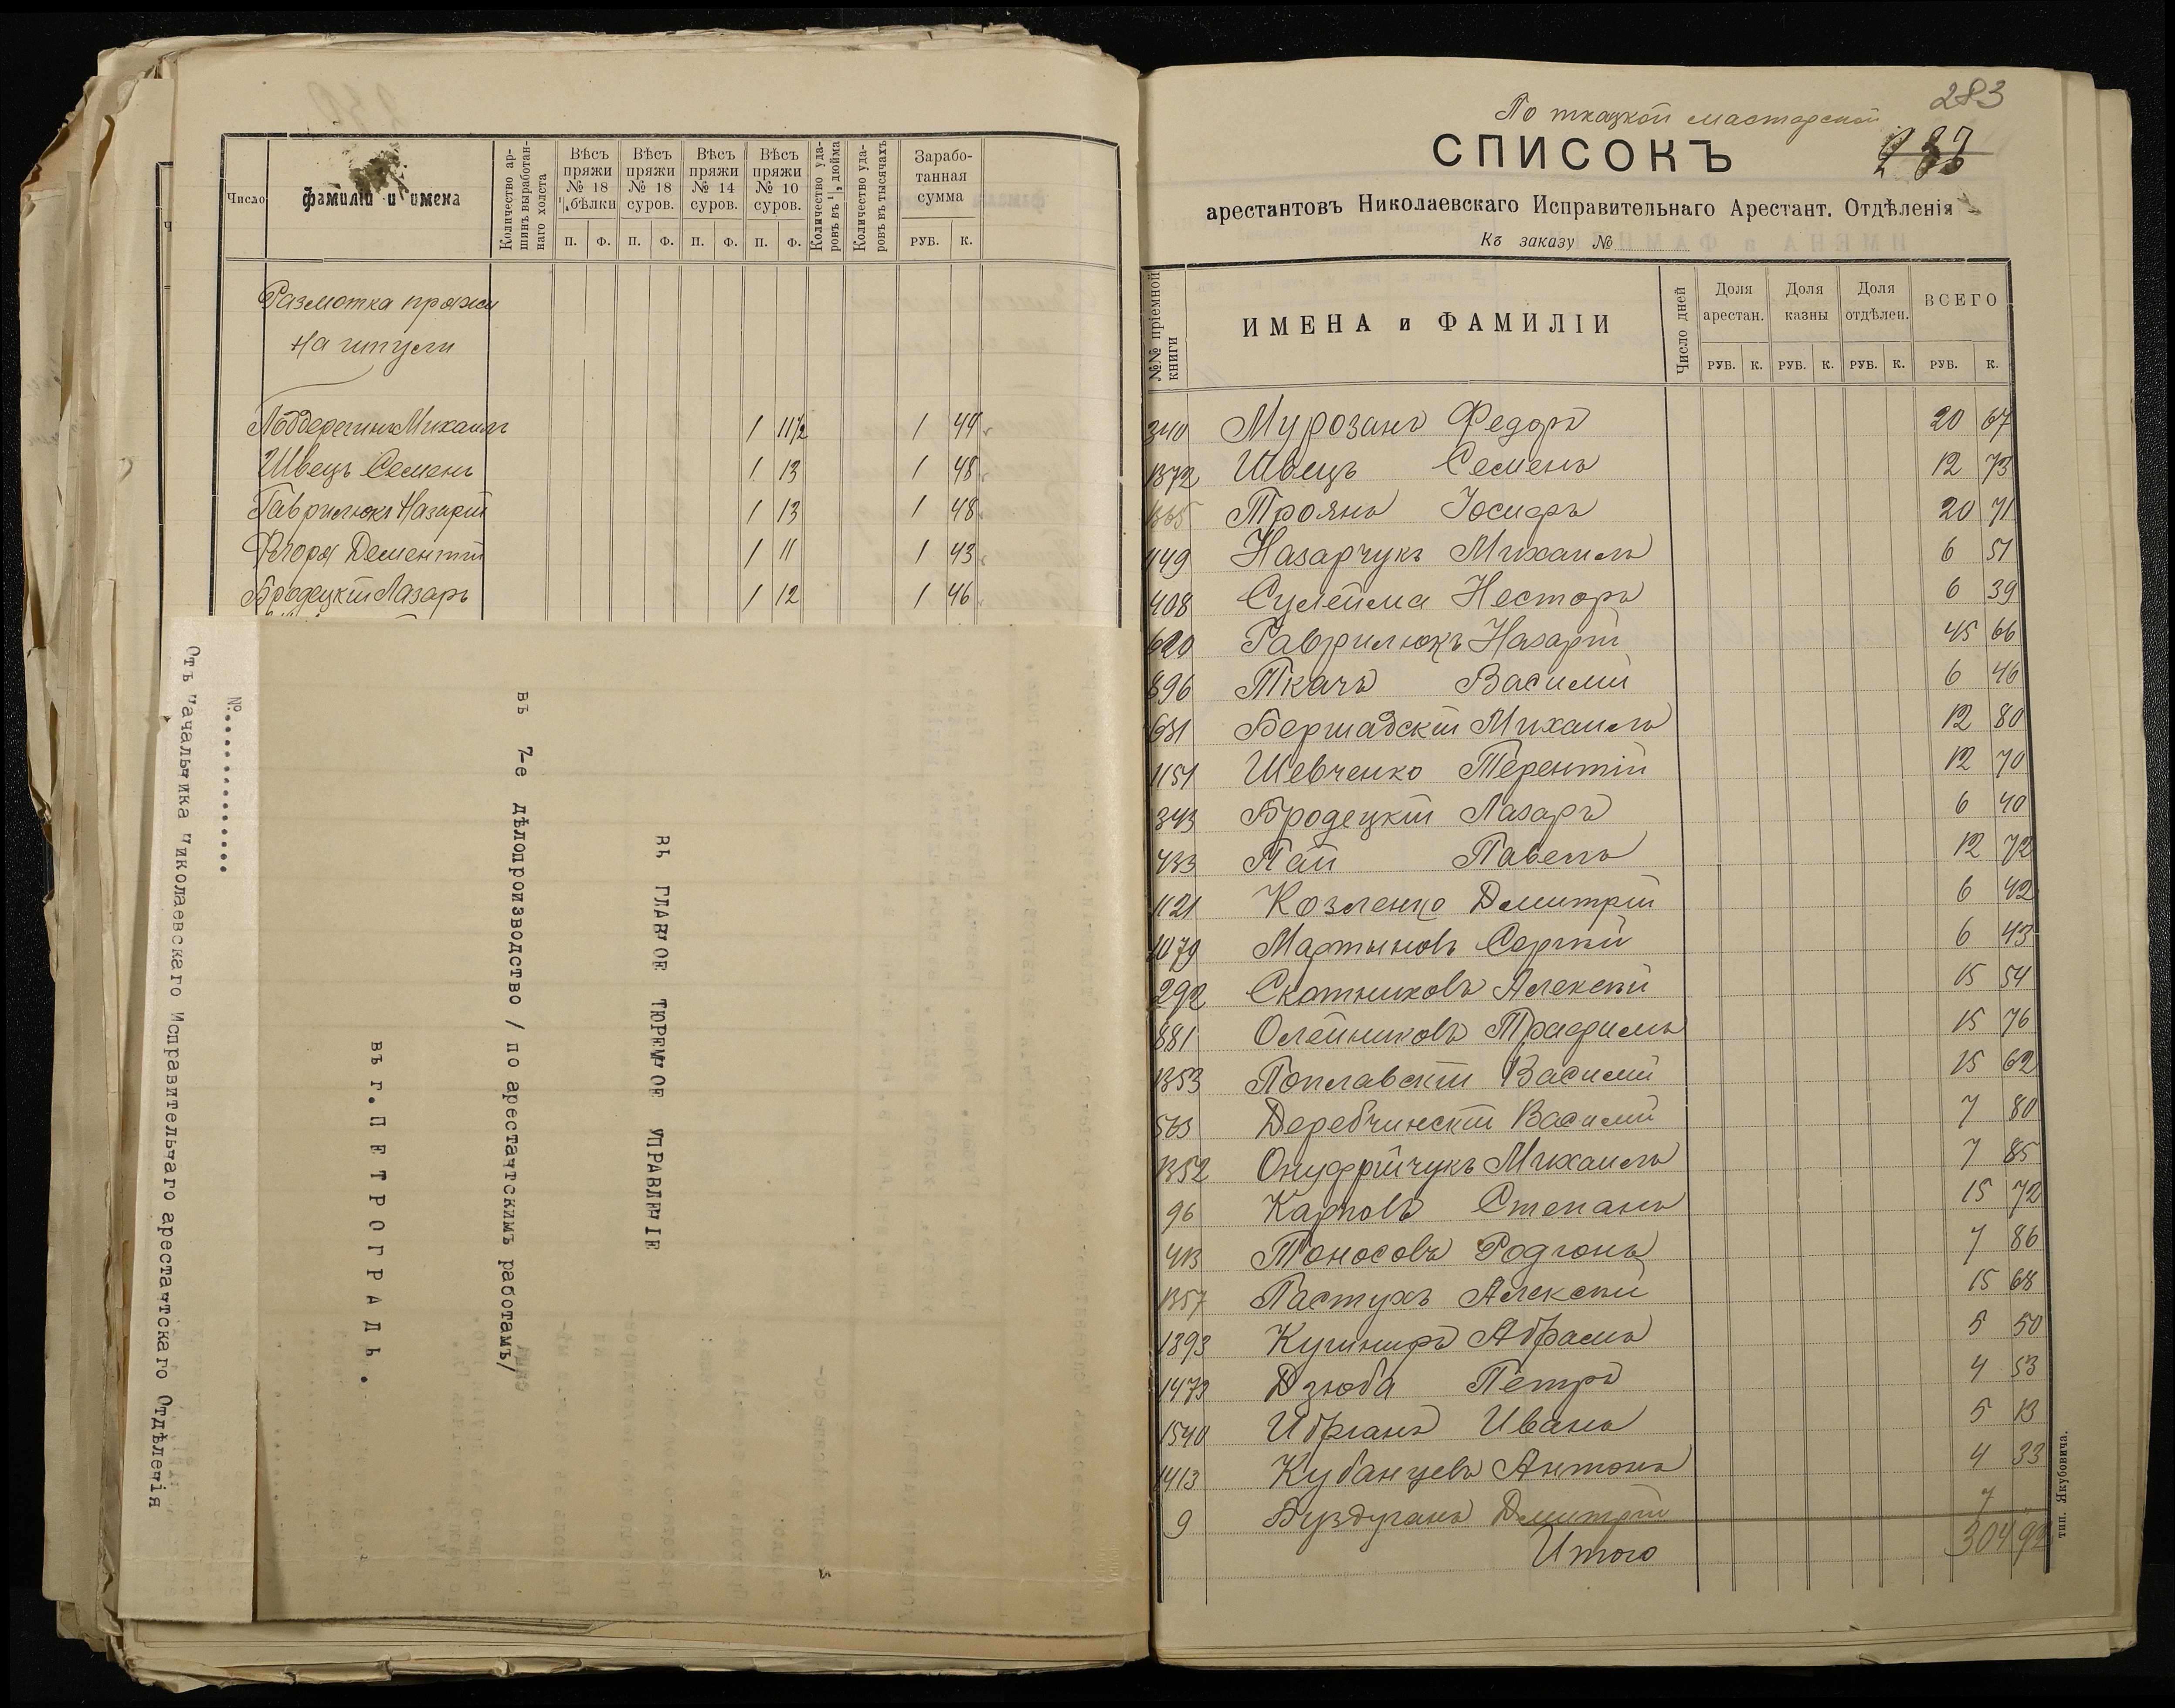 Число
фамиліи и имена
Количество ар-
шинъ выработан-
наго холста
Вѣсъ пряжи № 18 ½ бѣлки
Вѣсъ пряжи № 18 суров.
Вѣсъ пряжи № 14 суров.
Вѣсъ пряжи № 10 суров.
Количество уда-
ровъ въ ¼ дюйма
Количество уда-
ровъ въ тысячахъ
Зарабо-
танная
сумма
П. Ф. П. Ф. П. Ф. П. Ф. РУБ. К.
Размотка пряжи
на шпули
Поддерегинъ Михаилъ 1 11½ 1 44
Швецъ Семенъ 1 13 1 48
Гаврилюкъ Назарій 1 13 1 48
Дементій 1 11 1 43
Бродецкій Лазарь 1 12 1 46
ВЪ ГЛАВНОЕ ТЮРЕМНОЕ УПРАВЛЕНІЕ
въ 7-е дѣлопроизводство / по арестантскимъ работамъ/
въ г. ПЕТРОГРАДЪ.
№..............
Отъ Начальника Николаевскаго Исправительнаго арестантскаго Отдѣленія
283
По ткацкой мастерской
СПИСОКЪ
арестантовъ Николаевскаго Исправительнаго Арестант. Отдѣленія
Къ заказу №
№№ пріемной книги
ИМЕНА и ФАМИЛІИ
Число дней
Доля арестан.
Доля казны
Доля отдѣлен.
ВСЕГО
РУБ. К. РУБ. К. РУБ. К. РУБ. К.
340 Мурозанъ Федоръ 20 67
1372 Швецъ Семенъ 12 73
1365 Троянъ Іосифъ 20 71
449 Назарчукъ Михаилъ 6 51
408 Сулейма Несторъ 6 39
620 Гаврилюкъ Назарій 45 66
896 Ткачъ Василій 6 46
631 Бершадскій Михаилъ 12 80
1151 Шевченко Терентій 12 70
343 Бродецкій Лазарь 6 40
433 Пай Павелъ 12 72
1121 Козленко Дмитрій 6 42
1079 Мартыновъ Сергѣй 6 43
292 Скотниковъ Алексѣй 15 54
881 Олейниковъ Трофимъ 15 76
1353 Поплавскій Василій 15 62
563 Деребчинскій Василій 7 80
1352 Онуфрійчукъ Михаилъ 7 85
96 Карповъ Степанъ 15 72
413 Тоносовъ Родіонъ 7 86
1357 Пастухъ Алексѣй 15 68
1393 Кушниръ Абрамъ 5 50
1473 Дзюба Петръ 4 53
1540 Ибрганъ Иванъ 5 13
1413 Кубанцевъ Антонъ 4 33
9 Буздуганъ Дмитрій 7
Итого 304 92
тип. Якубовича.